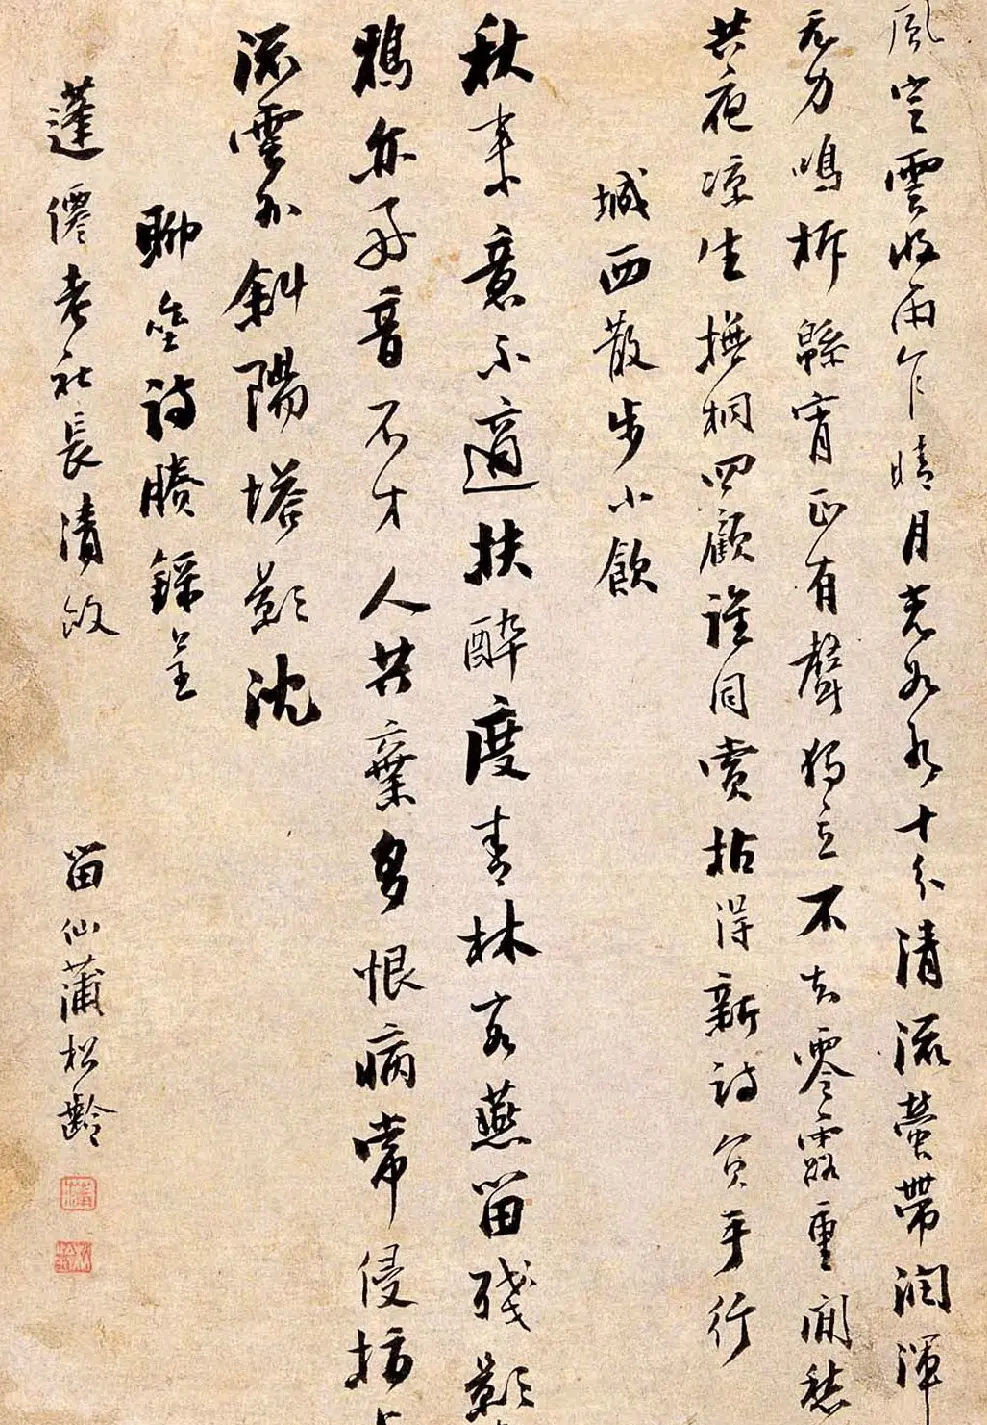 風定雲收雨乍晴月光如水十分清流螢帶潤渾
無力鳴柝緜宵正有聲獨立不知零露重閒愁
共夜凉生撫桐四顧誰同賞拈得新詩負手行
城西散步小飲
秋來意不適扶醉度青林客燕留殘影
鴉亦好音不才人共棄多恨病常侵
流雲外斜陽塔影沈
聊齋詩賸錄呈
蓬僊老社長清政
留仙蒲松齡